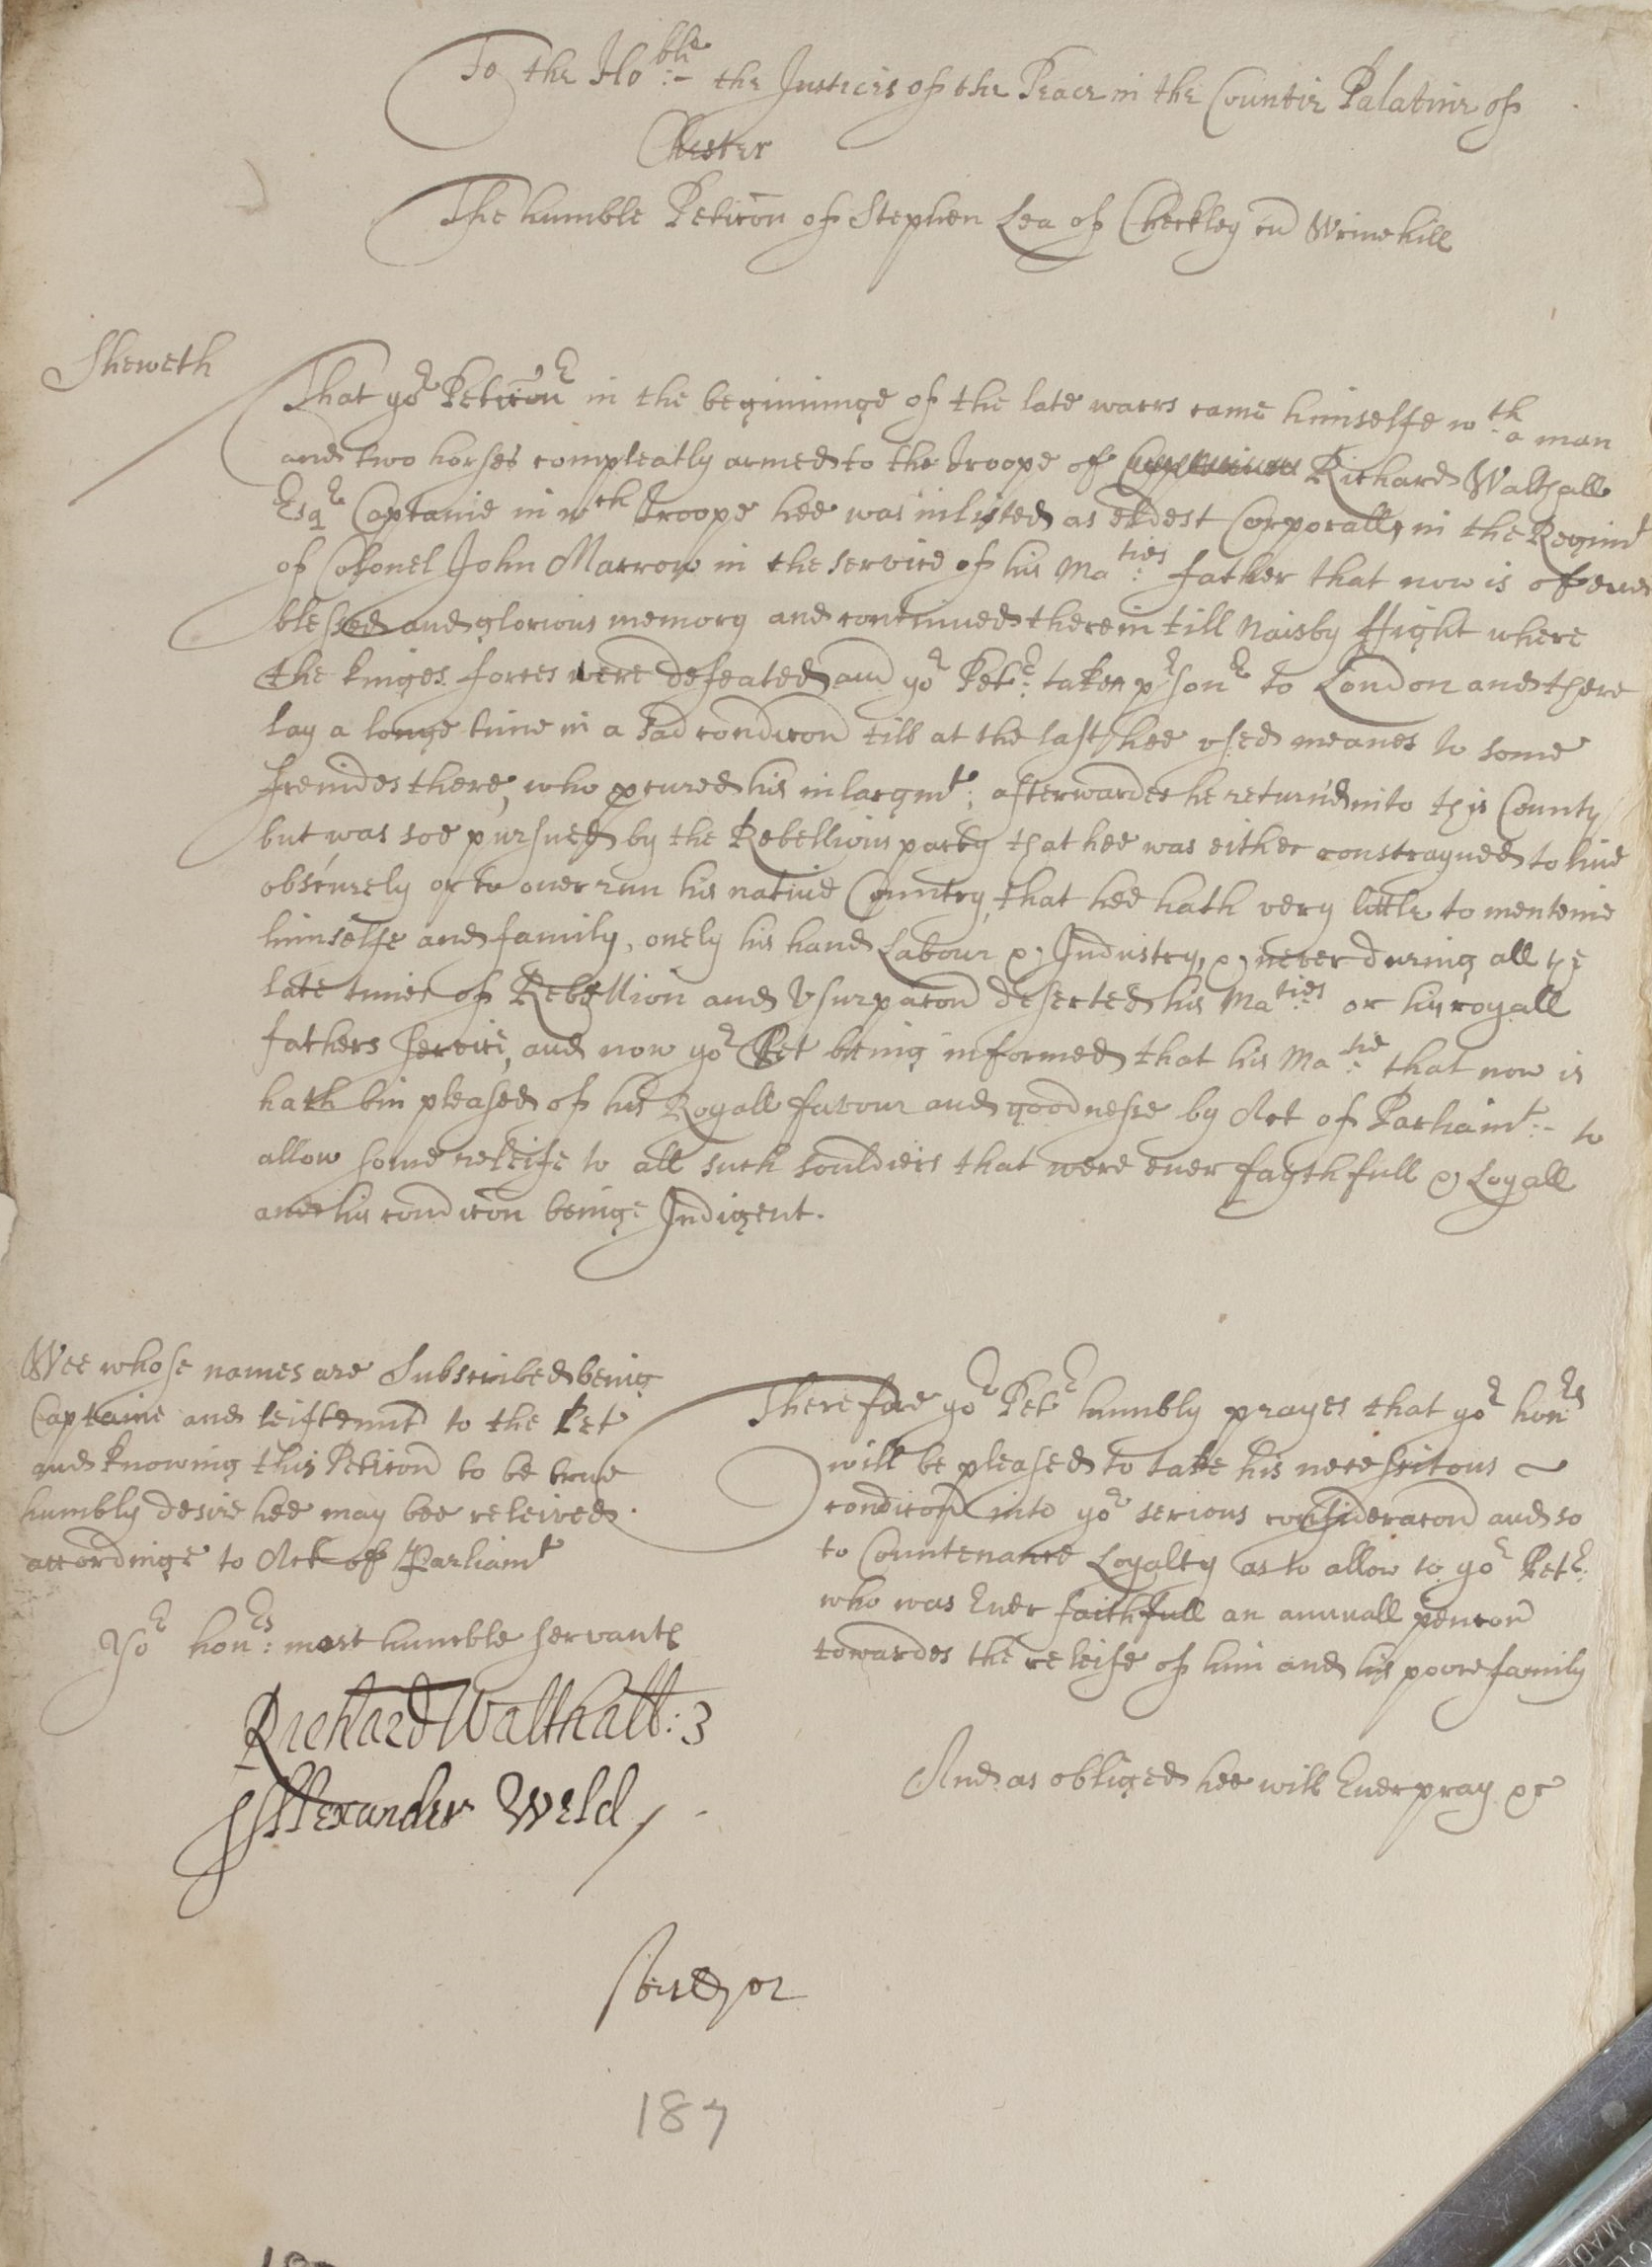 To the Ho:ble the Justices of the Peace in the Countie Palatine of
Chester
The humble Peticon of Stephen Lea of Checkley cu Wrinehill
Sheweth
That yor Peticonr in the beginninge of the late warrs came himselfe wth a man
and two horses compleatly armed to the Troope of Richard Walthall
Esqr Captaine in wch Troope hee was inlisted as eldest Corporall, in the Regimt
of Colonel John Marrow in the service of his Maties father that now is of ever
blessed and glorious memory and continued therein till Naisby ffight where
the kinges forces were defeated and yor Petr: taken prsonr to London and there
lay a longe time in a sad condicon till at the last hee used meanes to some
freindes there, who pcured his inlargmt: afterwardes he returned into this County
but was soe pursued by the Rebellious party that hee was either constrayned to live
obscurely or to over run his native Country, that hee hath very little to menteine
himselfe and family, onely his hand Labour & Industry, & never during all the
late times of Rebellion and Usurpacon deserted his Maties or his royall
fathers service, and now yor Pet being informed that his Matie that now is
hath bin pleased of his Royall favour and goodnesse by Act of Parliamt:- to
allow some releife to all such souldiers that were ever faythfull & Loyall
and his condicon beinge Indigent.
Wee whose names are Subscribed being
Captaine and leiftennt to the Pet
and knowing this Peticon to be true
humbly desire hee may bee releived
accordinge to Act of Parliamt
Yor honrs: most humble servants
Richard Walthall: 3
Alexander Weld
Therefore yor Petr humbly prayes that yor honrs
will be pleased to take his necessitous
condicon into yor serious consideracon and so
to Countenance Loyalty as to allow to yor Petr:
who was Ever faithfull an annuall pencon
towardes the releife of him and his poore family
And as obliged hee will Ever pray &c
187